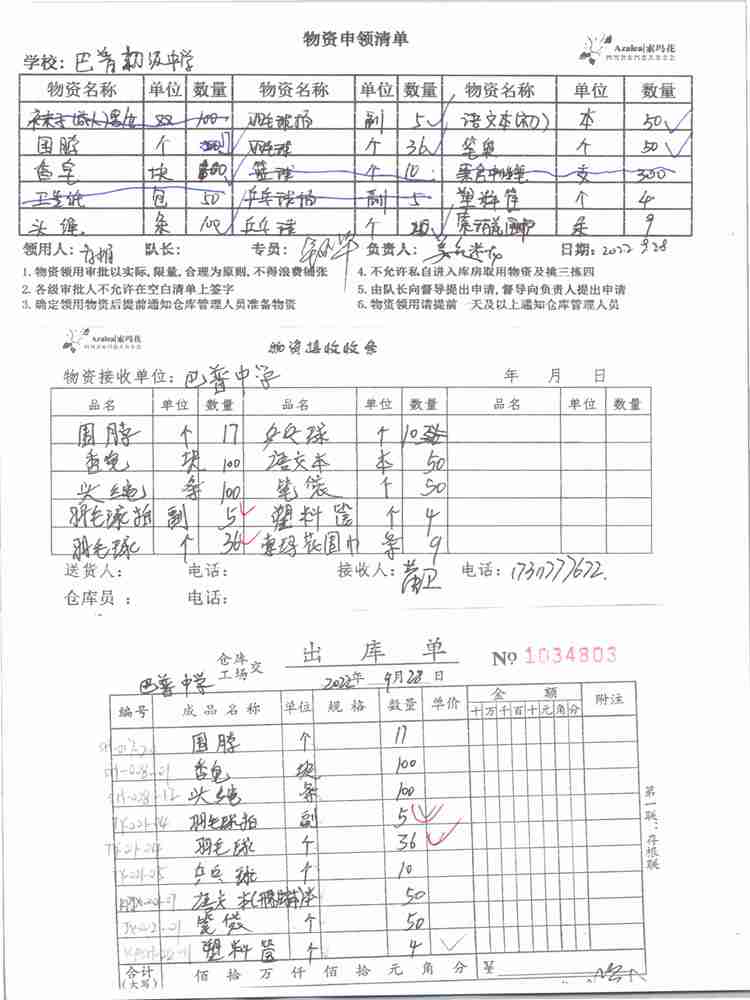 物资申领清单
Azalea|索玛花
学校：巴普初级中学
物资名称 单位 数量 物资名称 单位 数量 物资名称 单位 数量
双 100 羽毛球拍 副 5 语文本(初) 本 50
围脖 个 羽毛球 个 36 笔袋 个 50
香皂 块 篮球 个 10 支 300
卫生纸 包 50 乒乓球拍 副 5 塑料筐 个 4
头绳 条 100 乒乓球 个 条 9
领用人： 队长： 专员： 负责人： 日期：2022 9.28
1.物资领用审批以实际,限量,合理为原则,不得浪费铺张 4.不允许私自进入库房取用物资及挑三拣四
2.各级审批人不允许在空白清单上签字 5.由队长向督导提出申请,督导向负责人提出申请
3.确定领用物资后提前通知仓库管理人员准备物资 6.物资领用请提前一天及以上通知仓库管理人员
Azalea|索玛花
物资接收收条
物资接收单位：巴普中学 年 月 日
品名 单位 数量 品名 单位 数量 品名 单位 数量
围脖 个 17 乒乓球 个 10
香皂 块 100 语文本 本 50
头绳 条 100 笔袋 个 50
羽毛球拍 副 5 塑料筐 个 4
羽毛球 个 36 索玛花围巾 条 9
送货人： 电话： 接收人： 电话：
仓库员： 电话：
仓库
工场交 出库单 № 1034803
巴普中学 2022年 9月28日
编号 成品名称 单位 规格 数量 单价 金额 附注
十万千百十元角分
围脖 个 17
香皂 块 100
头绳 条 100
羽毛球拍 副 5
羽毛球 个 36
乒乓球 个 10
本 50
笔袋 个 50
塑料筐 个 4
第一联：存根联
合计
(大写) 佰 拾 万 仟 佰 拾 元 角 分 ¥